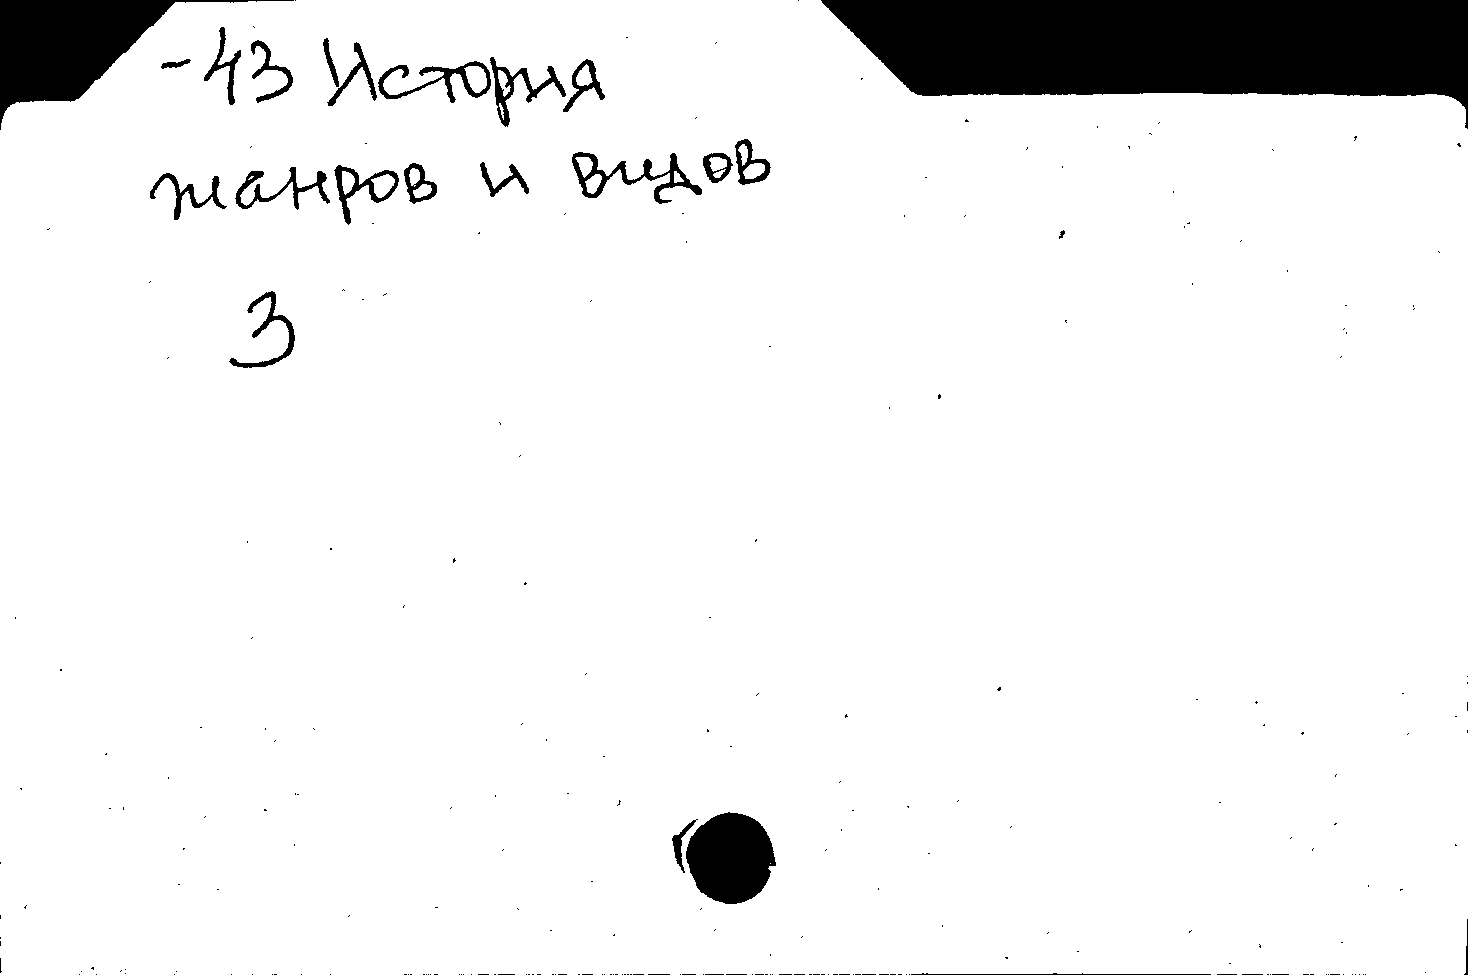 -43 История
жанров и видов
З